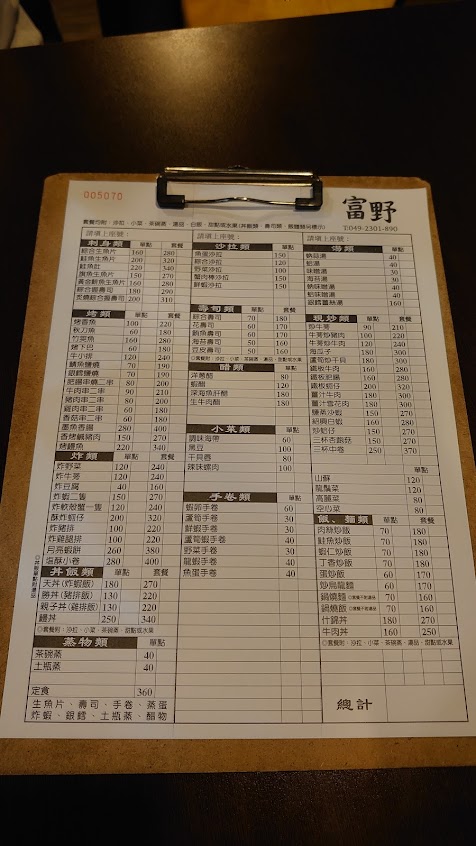 005070
富野
T:049-2301-890
套餐均附、沙拉、小菜、茶碗蒸、湯品、白飯、甜點或水果
請填上座號：
請填上座號：
刺身類 單點 套餐
綜合生魚片 160 280
鮭魚生魚片 200 320
鮭魚肚 220 340
旗魚生魚片 150 270
黃金鯡魚生魚片 160 280
綜合握壽司 180 290
炙燒綜合握壽司 200 310
烤類 單點 套餐
烤香魚 100 220
秋刀魚 60 180
竹莢魚 60 180
烤下巴 100 220
牛小排 120 240
鯖魚鹽燒 70 190
鯛魚鹽燒 70 190
肥腸串燒二串 80 200
牛肉串二串 90 210
豬肉串二串 80 200
雞肉串二串 60 180
香菇串二串 60 180
墨魚香腸 280 400
香烤鹹豬肉 150 270
烤鰻魚 220 340
炸類 單點 套餐
炸野菜 120 240
炸牛蒡 120 240
炸豆腐 40 160
炸蝦二隻 150 270
炸軟殼蟹一隻 120 240
酥炸蚵仔 200 320
炸豬排 100 220
炸雞腿排 100 220
月亮蝦餅 260 380
塩酥小卷 280 400
丼飯類 單點 套餐
天丼(炸蝦飯) 180 270
勝丼(豬排飯) 130 220
親子丼(雞排飯) 130 220
鰻丼 250 340
◎套餐附、沙拉、小菜、茶碗蒸、甜點或水果
蒸物類 單點
茶碗蒸 40
土瓶蒸 40
定食 360
生魚片、壽司、手卷、蒸蛋
炸蝦、銀鱈、土瓶蒸、醋物
沙拉類 單點
魚蛋沙拉 150
綜合沙拉 120
野菜沙拉 100
蟹肉棒沙拉 150
鮮蝦沙拉 150
壽司類 單點 套餐
綜合壽司 70 180
花壽司 50 160
鍋魚壽司 60 170
海苔壽司 50 160
豆皮壽司 50 160
◎套餐附、沙拉、小菜、茶碗蒸、甜點或水果
醋類 單點
洋蔥醋 80
蝦醋 120
深海魚肝醋 180
生牛肉醋 180
小菜類 單點
調味海帶 60
黑豆 100
干貝唇 80
辣味螺肉 100
手卷類 單點
蝦卵手卷 30
蘆筍手卷 30
鮮蝦手卷 60
蘆筍蝦手卷 40
野菜手卷 30
龍蝦手卷 40
魚蛋手卷 40
湯類 單點
蛤蜊湯 40
蛤湯 30
味噌湯 30
海苔湯 30
蛤味噌湯 40
魚味噌湯 40
銀鱈薑絲湯 50
現炒類 單點 套餐
炒牛蒡 90 210
牛蒡炒豬肉 100 220
牛蒡炒牛肉 120 240
海瓜子 180 300
蘆筍炒干貝 180 300
鐵板牛肉 160 280
鐵板肥腸 160 280
鐵板蚵仔 200 320
薑汁牛肉 180 300
薑汁雪花肉 180 300
鹽蒸沙蝦 150 270
紹興白蝦 160 280
炒蛤仔 150 270
三杯杏鮑菇 150 270
三杯中卷 240 360
單點
山蘇 120
龍鬚菜 120
高麗菜 80
空心菜 80
飯、麵類 單點 套餐
肉絲炒飯 80 180
鮭魚炒飯 80 180
蝦仁炒飯 80 180
丁香炒飯 80 180
蛋炒飯 60 160
炒烏龍麵 80 180
鍋燒麵 70 160
鍋燒飯 70 160
什錦丼 180 270
牛肉丼 160 250
◎套餐附、沙拉、小菜、茶碗蒸、湯品、甜點或水果
總計